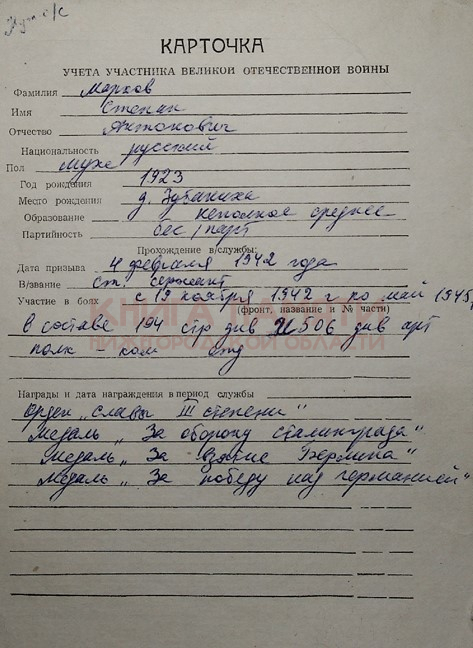 КАРТОЧКА
УЧЕТА УЧАСТНИКА ВЕЛИКОЙ ОТЕЧЕСТВЕННОЙ ВОЙНЫ
Фамилия Марков
Имя Степан
Отчество Антонович
Национальность русский
Пол муже
Год рождения 1923
Место рождения д. Зубаниха
Образование неполное среднее
Партийность бес/парт
Прохождение в/службы:
Дата призыва 4 февраля 1942 года
В/звание ст. сержант
Участие в боях с 19 ноября 1942 г по май 1945,
(фронт, название и № части)
в составе 194 стр див 506 див арт
полк - ком отд
КНИГА ПАМЯТИ
НИЖЕГОРОДСКОЙ ОБЛАСТИ
Награды и дата награждения в период службы
Орден „Славы III степени"
Медаль „За оборону Сталинграда"
Медаль „За взятие Берлина"
Медаль „За победу над Германией"